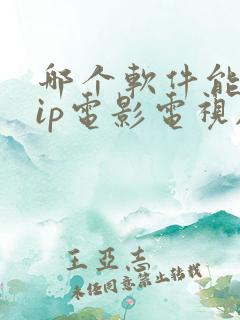 哪个軟件能
ip電影電視
王亞志
未任同意禁止转载